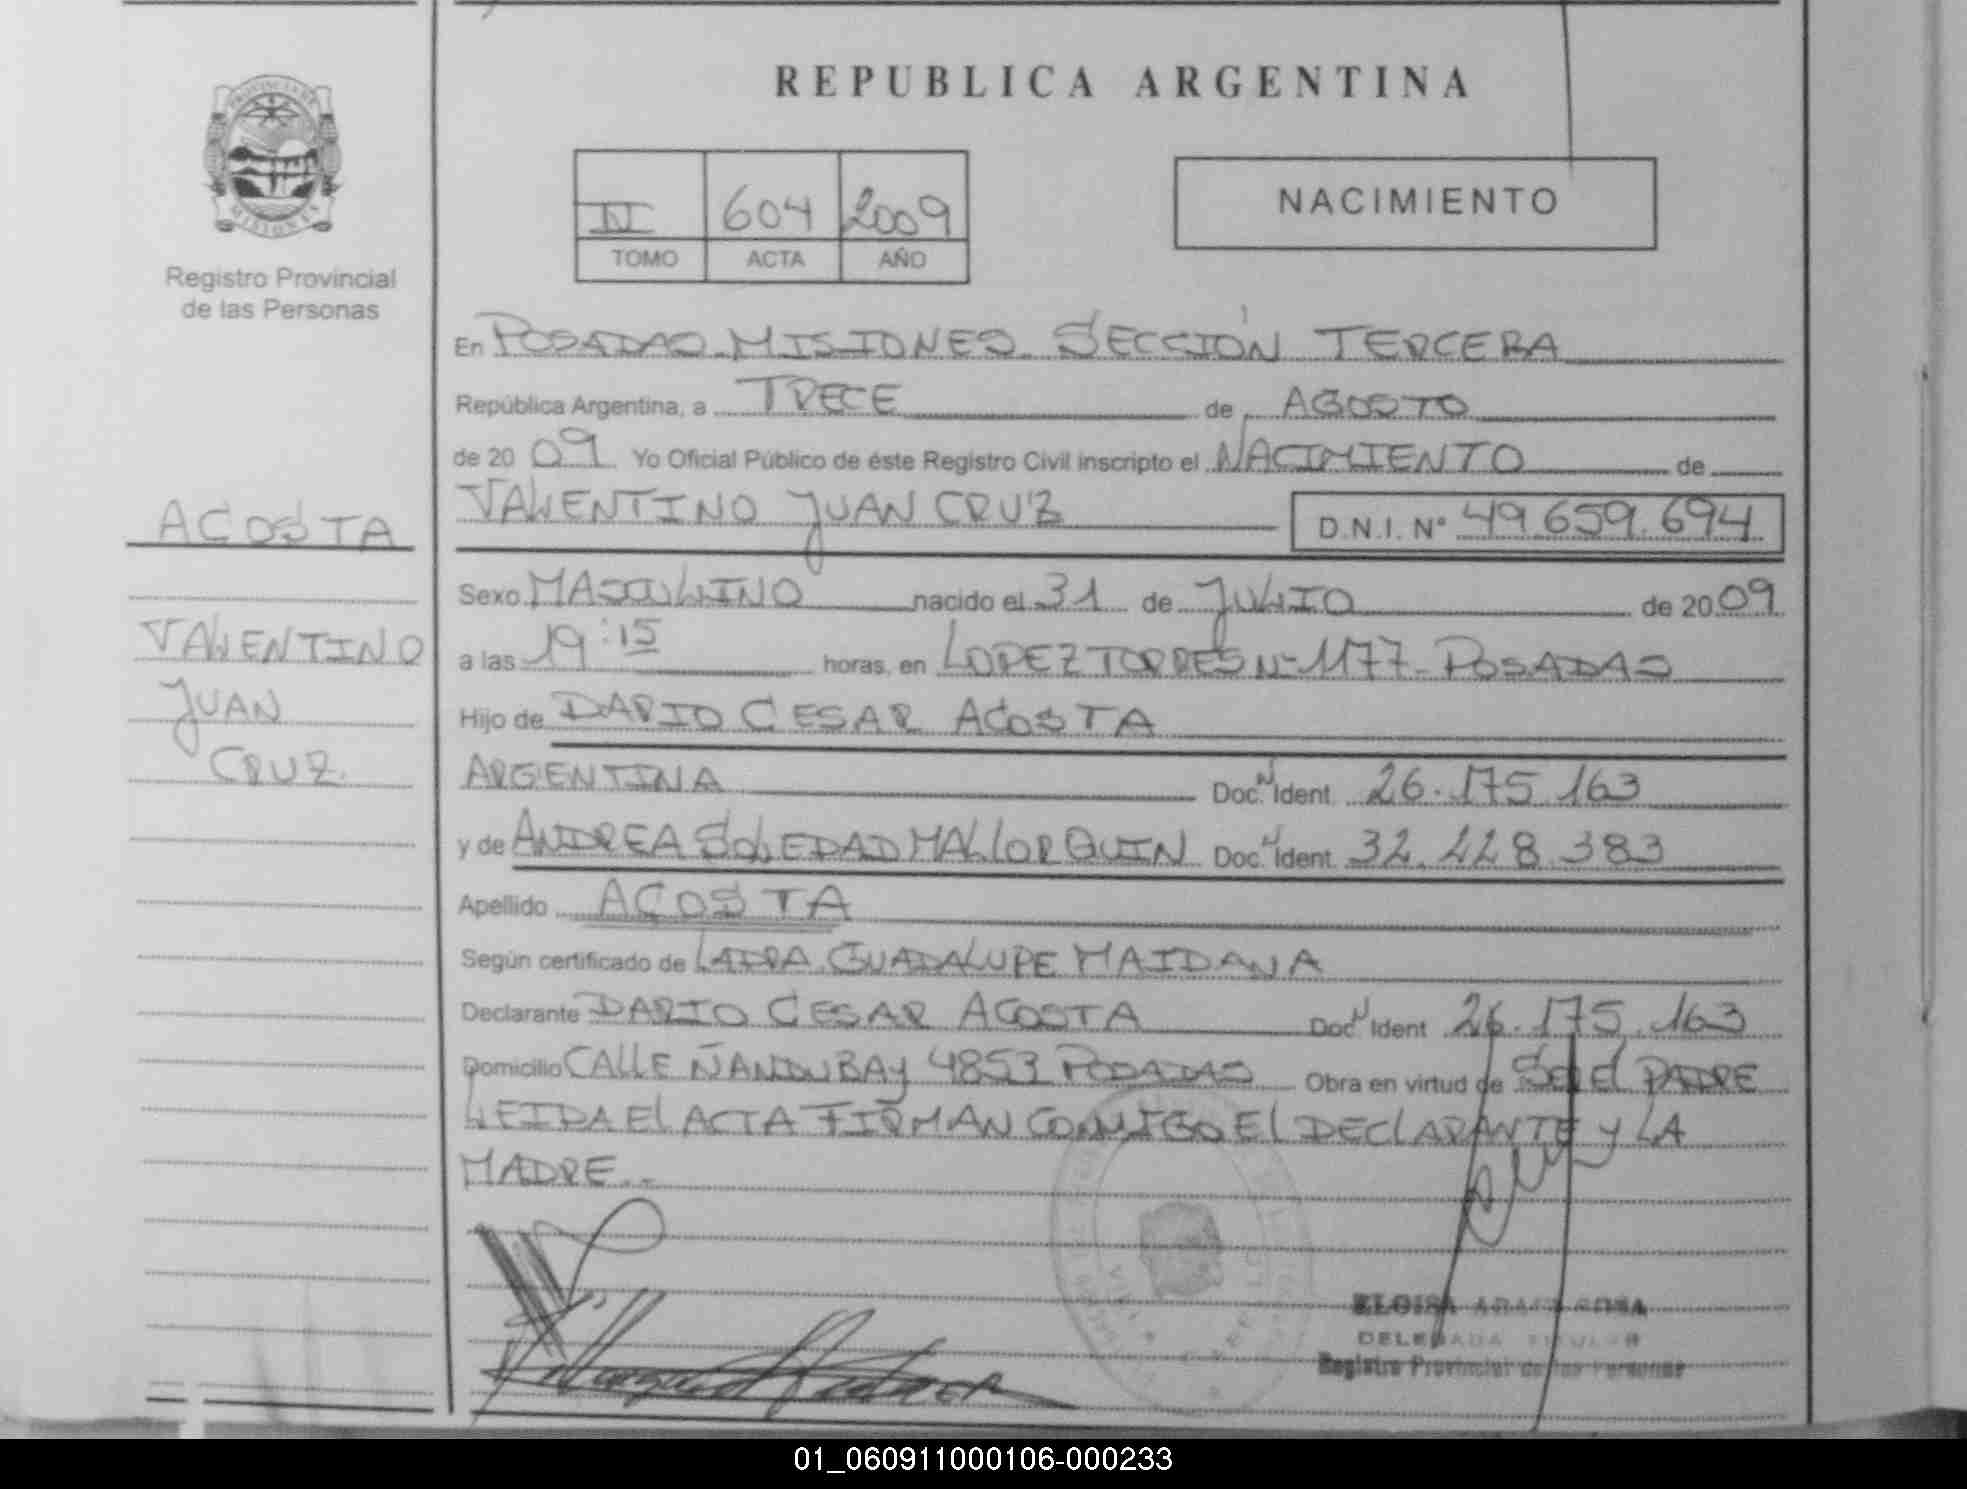 REPUBLICA ARGENTINA
PROVINCIA DE
MISIONES
Registro Provincial
de las Personas
II 604 2009
TOMO ACTA AÑO
NACIMIENTO
En POSADAS MISIONES SECCIÓN TERCERA
República Argentina, a TRECE de AGOSTO
de 2009 Yo Oficial Público de éste Registro Civil inscripto el NACIMIENTO de
VALENTINO JUAN CRUZ D.N.I. Nº 49.659.694
ACOSTA
VALENTINO
JUAN
CRUZ.
Sexo MASCULINO nacido el 31 de JULIO de 2009
a las 19:15 horas, en LOPEZ TORRES Nº 1177 - POSADAS
Hijo de DARIO CESAR ACOSTA
ARGENTINA Doc. N Ident. 26.175.163
y de ANDREA SOLEDAD MALLORQUIN Doc. N Ident. 32.228.383
Apellido ACOSTA
Según certificado de GUADALUPE MAIDANA
Declarante DARIO CESAR ACOSTA Doc. N Ident. 26.175.163
Domicilio CALLE ÑANDUBAY 4853 POSADAS Obra en virtud de SER El PADRE
LEIDA El ACTA FIRMAN CONMIGO El DEClARANTE y LA
MADRE..
ELOISA
DELEGADA TITULAR
Registro Provincial de las Personas
01_060911000106-000233